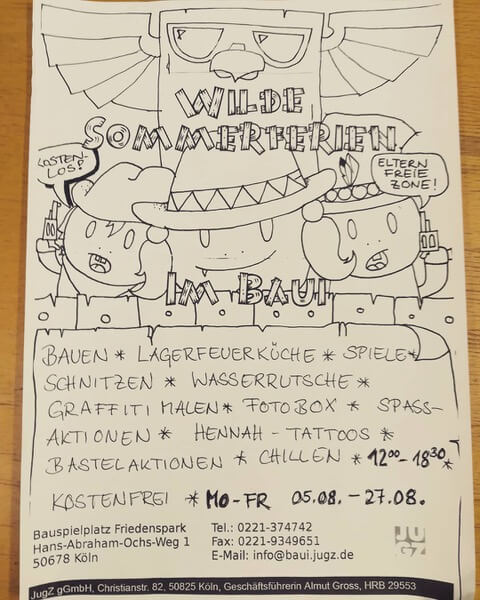 WILDE
SOMMERFERIEN
KOSTEN-
LOS!
ELTERN
FREIE
ZONE!
IM BAUI
BAUEN * LAGERFEUERKÜCHE * SPIELE*
SCHNITZEN * WASSERRUTSCHE *
GRAFFITI MALEN * FOTOBOX * SPASS-
AKTIONEN * HENNAH - TATTOOS *
BASTELAKTIONEN * CHILLEN * 12⁰⁰- 18³⁰ *
KOSTENFREI * MO-FR 05.08. - 27.08.
Bauspielplatz Friedenspark
Hans-Abraham-Ochs-Weg 1
50678 Köln
Tel.: 0221-374742
Fax: 0221-9349651
E-Mail: info@baui.jugz.de
JU
GZ
JugZ gGmbH, Christianstr. 82, 50825 Köln, Geschäftsführerin Almut Gross, HRB 29553